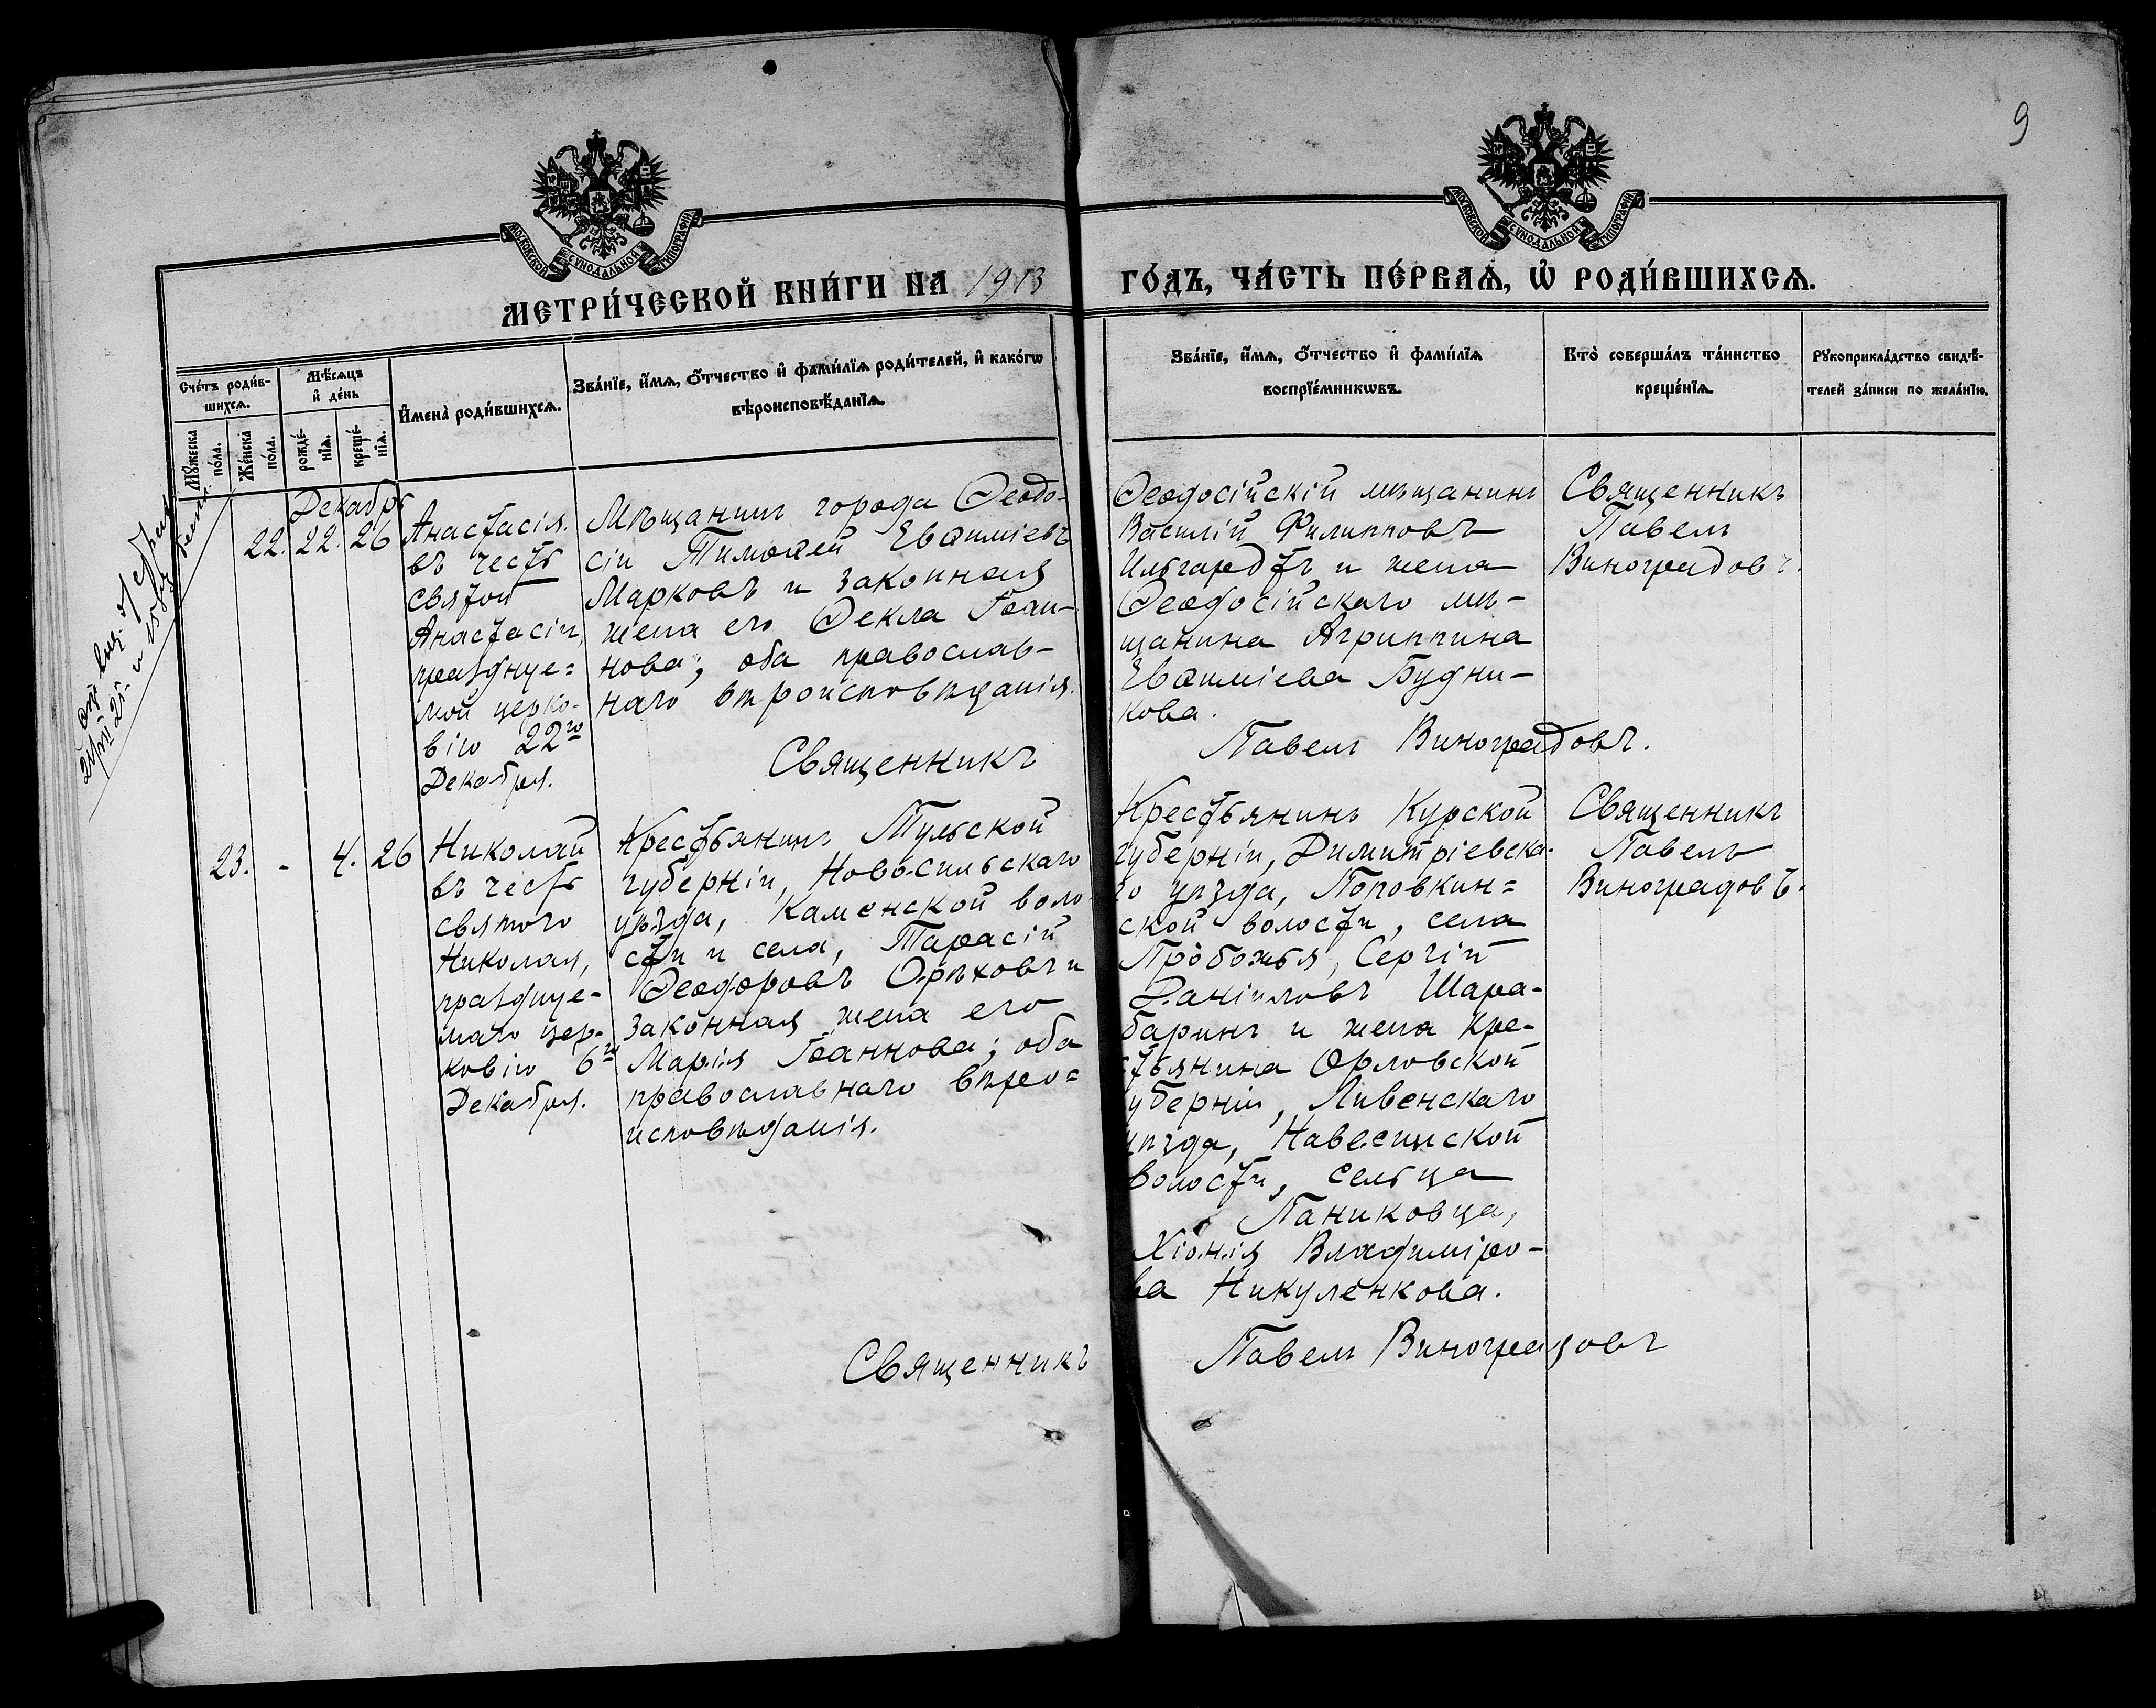 9
МОСКОВСКОЙ СѴНОДАЛЬНОЙ ТИПОГРАФІИ
МОСКОВСКОЙ СѴНОДАЛЬНОЙ ТИПОГРАФІИ
МЕТРИ́ЧЕСКОЙ КНИ́ГИ НА 1913
ГО́ДЪ, ЧА́СТЬ ПЕ́РВАѦ, Ѽ РОДИ́ВШИХСѦ.
Сче́тъ роди́в-
шихсѧ.
Мꙋ́жеска
по́ла.
Же́нска
по́ла.
Мѣ́сѧцъ
и҆ де́нь
рожде́-
нїѧ.
креще́-
нїѧ.
И҆мена̀ роди́вшихсѧ.
Зва́нїе, и҆́мѧ, ѻ҆́тчество и҆ фами́лїѧ роди́телей, и҆ како́гѡ
вѣроисповѣ́данїѧ.
Зва́нїе, и҆́мѧ, ѻ҆́тчество и҆ фами́лїѧ
воспрїе́мникѡвъ.
Кто̀ соверша́лъ та́инство
креще́нїѧ.
Рꙋкоприкла́дство свидѣ́-
телей за́писи по жела́нїю.
Декабрь
22. 22. 26
Анастасія.
въ честь
святой
Анастасіи,
празднуе=
мой церко-
вію 22го
Декабря.
Мѣщанинъ города Ѳеодо-
сіи Тимоѳей Евѳиміевъ
Марковъ и законная
жена его Ѳекла Іоан-
нова; оба православ-
наго вѣроисповѣданія.
Священникъ
Ѳеодосійскій мѣщанинъ
Василій Филипповъ
и жена
Ѳеодосійскаго мѣ-
щанина Агриппина
Евѳиміева Будни-
кова.
Павелъ Виноградовъ.
Священникъ
Павелъ
Виноградовъ.
23. - 4. 26
Николай
въ честь
святого
Николая,
празднуе-
маго цер-
ковію 6го
Декабря.
Крестьянинъ Тульской
губерніи, Новосильскаго
уѣзда, Каменской воло
сти и села, Тарасій
Ѳеодоровъ Орѣховъ и
законная жена его
Марія Іоаннова; оба
православнаго вѣро=
исповѣданія.
Священникъ
Крестьянинъ Курской
губерніи, Димитріевска-
го уѣзда, Поповкин=
ской волости, села
Пробожья, Сергій
Даніиловъ Шара-
баринъ и жена кре-
стьянина Орловской
губерніи, Ливенскаго
уѣзда, Навесинской
волости, сельца
Паниковца,
Хіонія Владиміро-
ва Никуленкова.
Павелъ Виноградовъ
Священникъ
Павелъ
Виноградовъ.